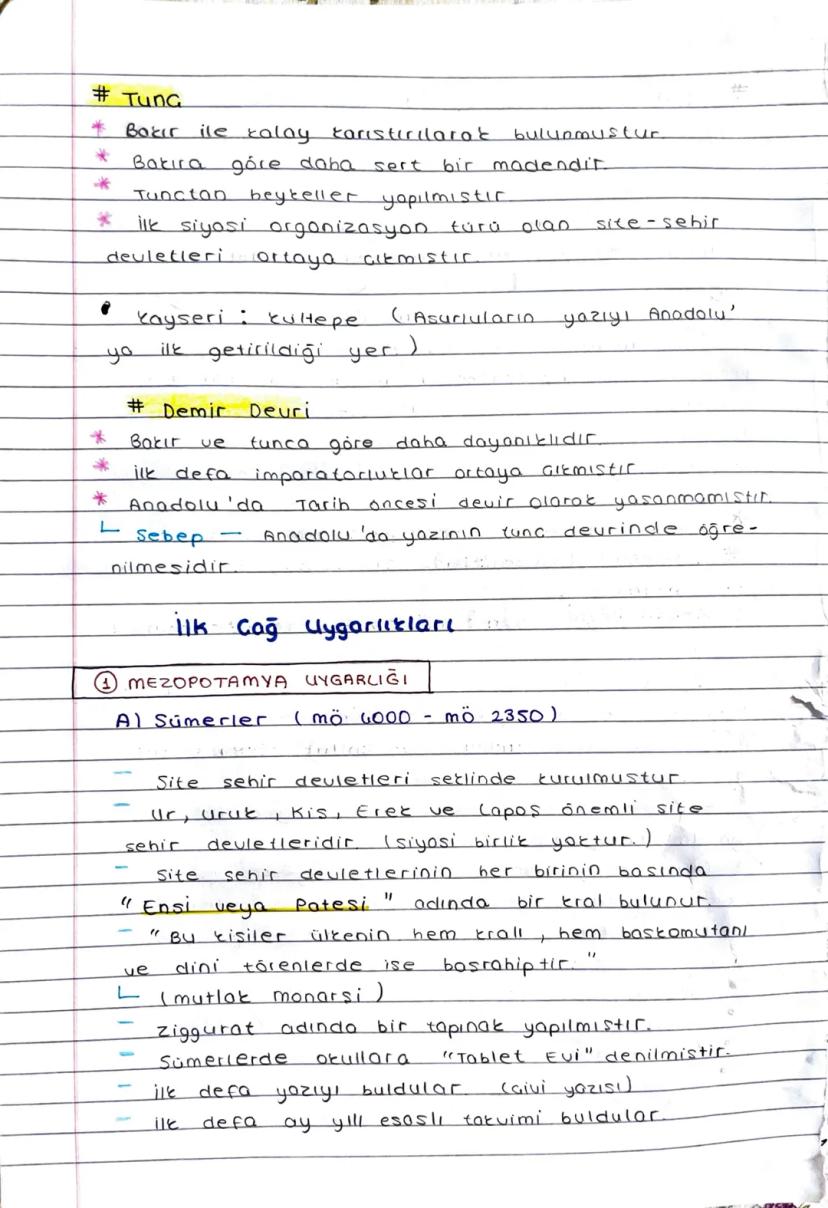 # Tunc
* Bakır ile kalay karıstırılarak bulunmustur.
* Bakıra göre daha sert bir madendir.
* Tunctan heykeller yapılmıstır.
* İlk siyasi organizasyon türü olan site-sehir
devletleri ortaya cıkmıstır.
• Kayseri : Kültepe (Asurluların yazıyı Anadolu'
ya ilk getirildiği yer.)
# Demir Devri
* Bakır ve tunca göre daha dayanıklıdır.
* İlk defa imparatorluklar ortaya cıkmıstır.
* Anadolu'da Tarih öncesi devir olarak yasanmamıstır.
└ Sebep — Anadolu'da yazının tunc devrinde öğre-
nilmesidir.
İlk Cağ Uygarlıkları
① MEZOPOTAMYA UYGARLIĞI
A) Sümerler (mö 4000 - mö 2350)
- Site sehir devletleri seklinde kurulmustur.
- Ur, uruk, Kis, Erek ve Lagas önemli site
sehir devletleridir. (siyasi birlik yoktur.)
- Site sehir devletlerinin her birinin basında
"Ensi veya Patesi" adında bir kral bulunur.
- "Bu kisiler ülkenin hem kralı, hem baskomutanı
ve dini törenlerde ise basrahiptir."
└ (mutlak monarsi)
- Ziggurat adında bir tapınak yapılmıstır.
- Sümerlerde okullara "Tablet Evi" denilmistir.
- İlk defa yazıyı buldular. (civi yazısı)
- İlk defa ay yılı esaslı takvimi buldular.